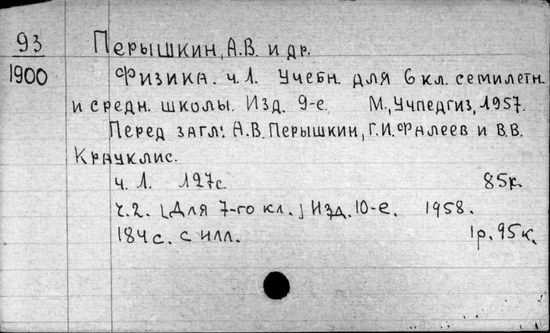 93
1900
Перышкин, А.В. и др.
Физика. ч.1. Учебн. для 6 кл. семилетн.
и средн. школы. Изд. 9-е. М., Учпедгиз, 1957.
Перед загл: А.В. Перышкин, Г.И. Фалеев и В.В.
Крауклис.
ч. 1. 127с 85к.
ч.2. [Для 7-го кл.] Изд. 10-е. 1958.
184с. с илл. 1р. 95к.